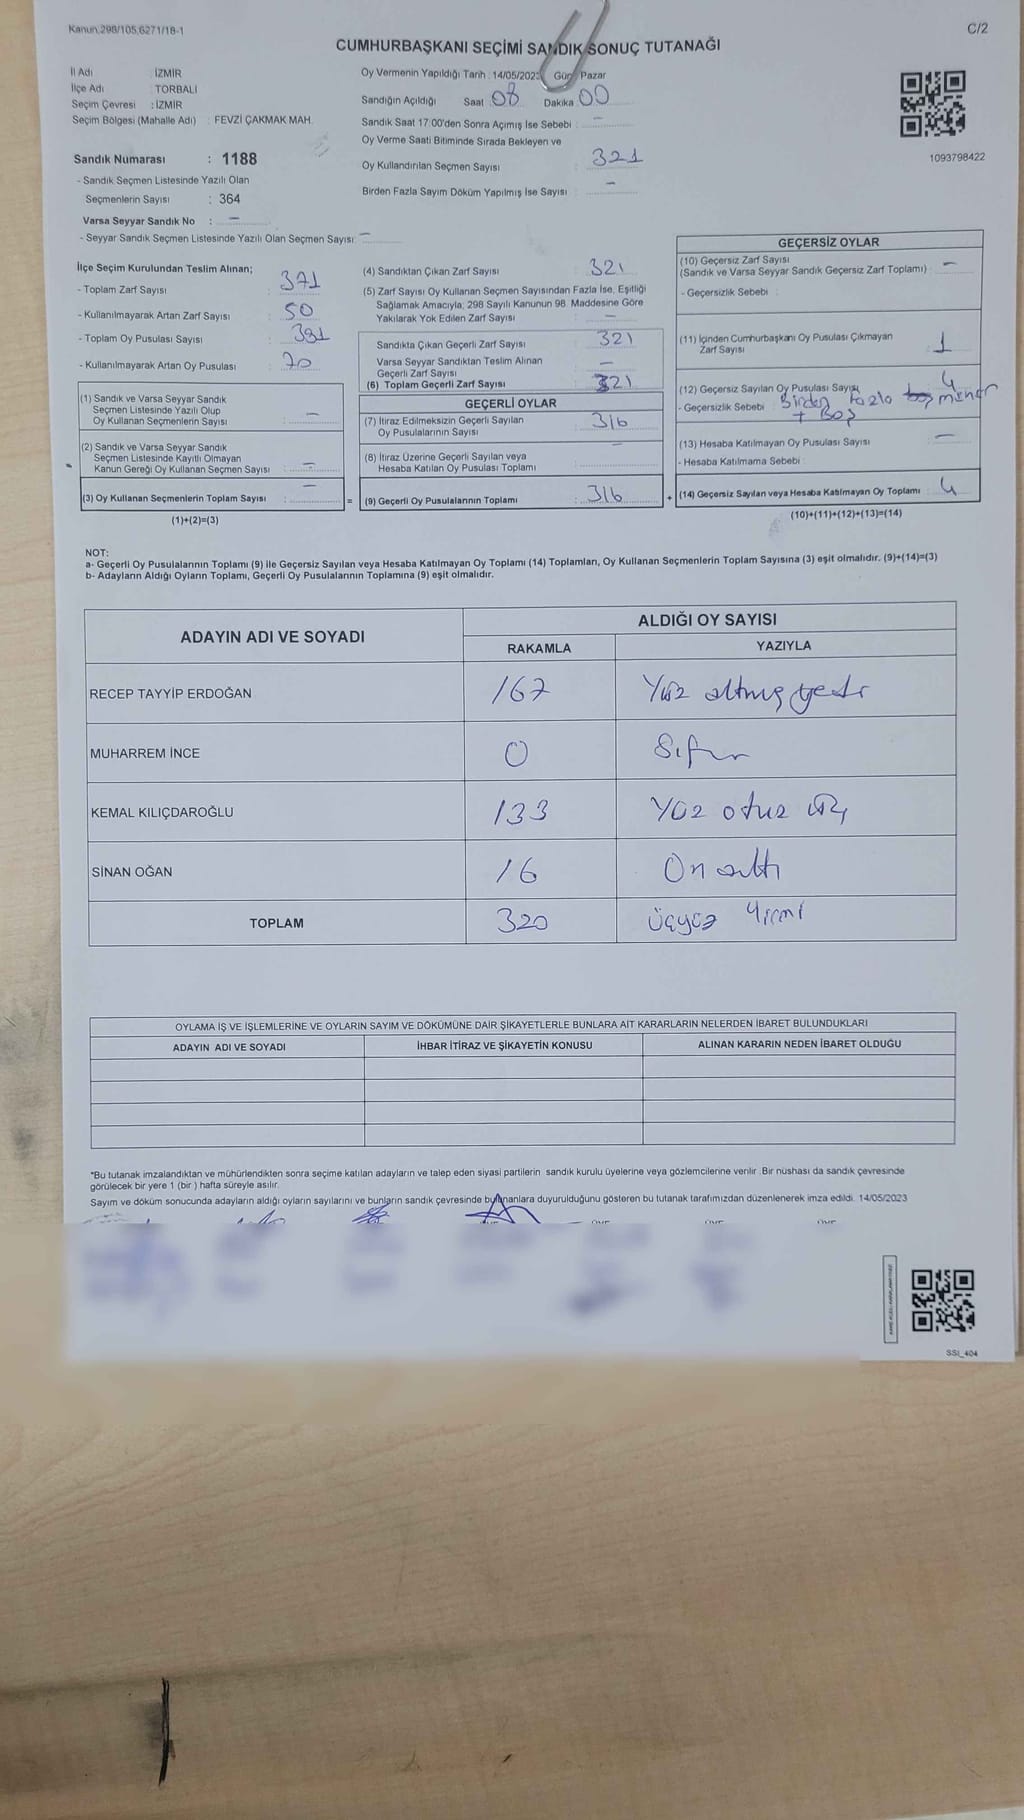 Kanun:298/105,6271/18-1
C/2
CUMHURBAŞKANI SEÇİMİ SANDIK SONUÇ TUTANAĞI
İl Adı : İZMİR
İlçe Adı : TORBALI
Seçim Çevresi : İZMİR
Seçim Bölgesi (Mahalle Adı) : FEVZİ ÇAKMAK MAH.
Oy Vermenin Yapıldığı Tarih : 14/05/2023 Gün : Pazar
Sandığın Açıldığı Saat : 08 Dakika : 00
Sandık Saat 17:00'den Sonra Açımış İse Sebebi : –
Oy Verme Saati Bitiminde Sırada Bekleyen ve
Oy Kullandırılan Seçmen Sayısı : 321
Birden Fazla Sayım Döküm Yapılmış İse Sayısı : –
1093798422
Sandık Numarası : 1188
- Sandık Seçmen Listesinde Yazılı Olan
Seçmenlerin Sayısı : 364
Varsa Seyyar Sandık No : –
- Seyyar Sandık Seçmen Listesinde Yazılı Olan Seçmen Sayısı: –
İlçe Seçim Kurulundan Teslim Alınan;
- Toplam Zarf Sayısı : 371
- Kullanılmayarak Artan Zarf Sayısı : 50
- Toplam Oy Pusulası Sayısı : 391
- Kullanılmayarak Artan Oy Pusulası : 70
(1) Sandık ve Varsa Seyyar Sandık
Seçmen Listesinde Yazılı Olup
Oy Kullanan Seçmenlerin Sayısı : –
(2) Sandık ve Varsa Seyyar Sandık
Seçmen Listesinde Kayıtlı Olmayan
Kanun Gereği Oy Kullanan Seçmen Sayısı : –
(3) Oy Kullanan Seçmenlerin Toplam Sayısı : –
(1)+(2)=(3)
(4) Sandıktan Çıkan Zarf Sayısı : 321
(5) Zarf Sayısı Oy Kullanan Seçmen Sayısından Fazla İse, Eşitliği
Sağlamak Amacıyla; 298 Sayılı Kanunun 98. Maddesine Göre
Yakılarak Yok Edilen Zarf Sayısı : –
Sandıkta Çıkan Geçerli Zarf Sayısı : 321
Varsa Seyyar Sandıktan Teslim Alınan
Geçerli Zarf Sayısı : –
(6) Toplam Geçerli Zarf Sayısı : 321
GEÇERLİ OYLAR
(7) İtiraz Edilmeksizin Geçerli Sayılan
Oy Pusulalarının Sayısı : 316
(8) İtiraz Üzerine Geçerli Sayılan veya
Hesaba Katılan Oy Pusulası Toplamı : –
= (9) Geçerli Oy Pusulalarının Toplamı : 316 +
GEÇERSİZ OYLAR
(10) Geçersiz Zarf Sayısı
(Sandık ve Varsa Seyyar Sandık Geçersiz Zarf Toplamı) : –
- Geçersizlik Sebebi :
(11) İçinden Cumhurbaşkanı Oy Pusulası Çıkmayan
Zarf Sayısı : 1
(12) Geçersiz Sayılan Oy Pusulası Sayısı : 4
- Geçersizlik Sebebi : Birden fazla mühür
+ Boş
(13) Hesaba Katılmayan Oy Pusulası Sayısı : –
- Hesaba Katılmama Sebebi :
(14) Geçersiz Sayılan veya Hesaba Katılmayan Oy Toplamı : 4
(10)+(11)+(12)+(13)=(14)
NOT:
a- Geçerli Oy Pusulalarının Toplamı (9) ile Geçersiz Sayılan veya Hesaba Katılmayan Oy Toplamı (14) Toplamları, Oy Kullanan Seçmenlerin Toplam Sayısına (3) eşit olmalıdır. (9)+(14)=(3)
b- Adayların Aldığı Oyların Toplamı, Geçerli Oy Pusulalarının Toplamına (9) eşit olmalıdır.
ADAYIN ADI VE SOYADI
ALDIĞI OY SAYISI
RAKAMLA YAZIYLA
RECEP TAYYİP ERDOĞAN 167 Yüz altmış yedi
MUHARREM İNCE 0 Sıfır
KEMAL KILIÇDAROĞLU 133 Yüz otuz üç
SİNAN OĞAN 16 On altı
TOPLAM 320 Üçyüz Yirmi
OYLAMA İŞ VE İŞLEMLERİNE VE OYLARIN SAYIM VE DÖKÜMÜNE DAİR ŞİKAYETLERLE BUNLARA AİT KARARLARIN NELERDEN İBARET BULUNDUKLARI
ADAYIN ADI VE SOYADI İHBAR İTİRAZ VE ŞİKAYETİN KONUSU ALINAN KARARIN NEDEN İBARET OLDUĞU
*Bu tutanak imzalandıktan ve mühürlendikten sonra seçime katılan adayların ve talep eden siyasi partilerin sandık kurulu üyelerine veya gözlemcilerine verilir. Bir nüshası da sandık çevresinde
görülecek bir yere 1 (bir ) hafta süreyle asılır.
Sayım ve döküm sonucunda adayların aldığı oyların sayılarını ve bunların sandık çevresinde bulunanlara duyurulduğunu gösteren bu tutanak tarafımızdan düzenlenerek imza edildi. 14/05/2023
SSI_404